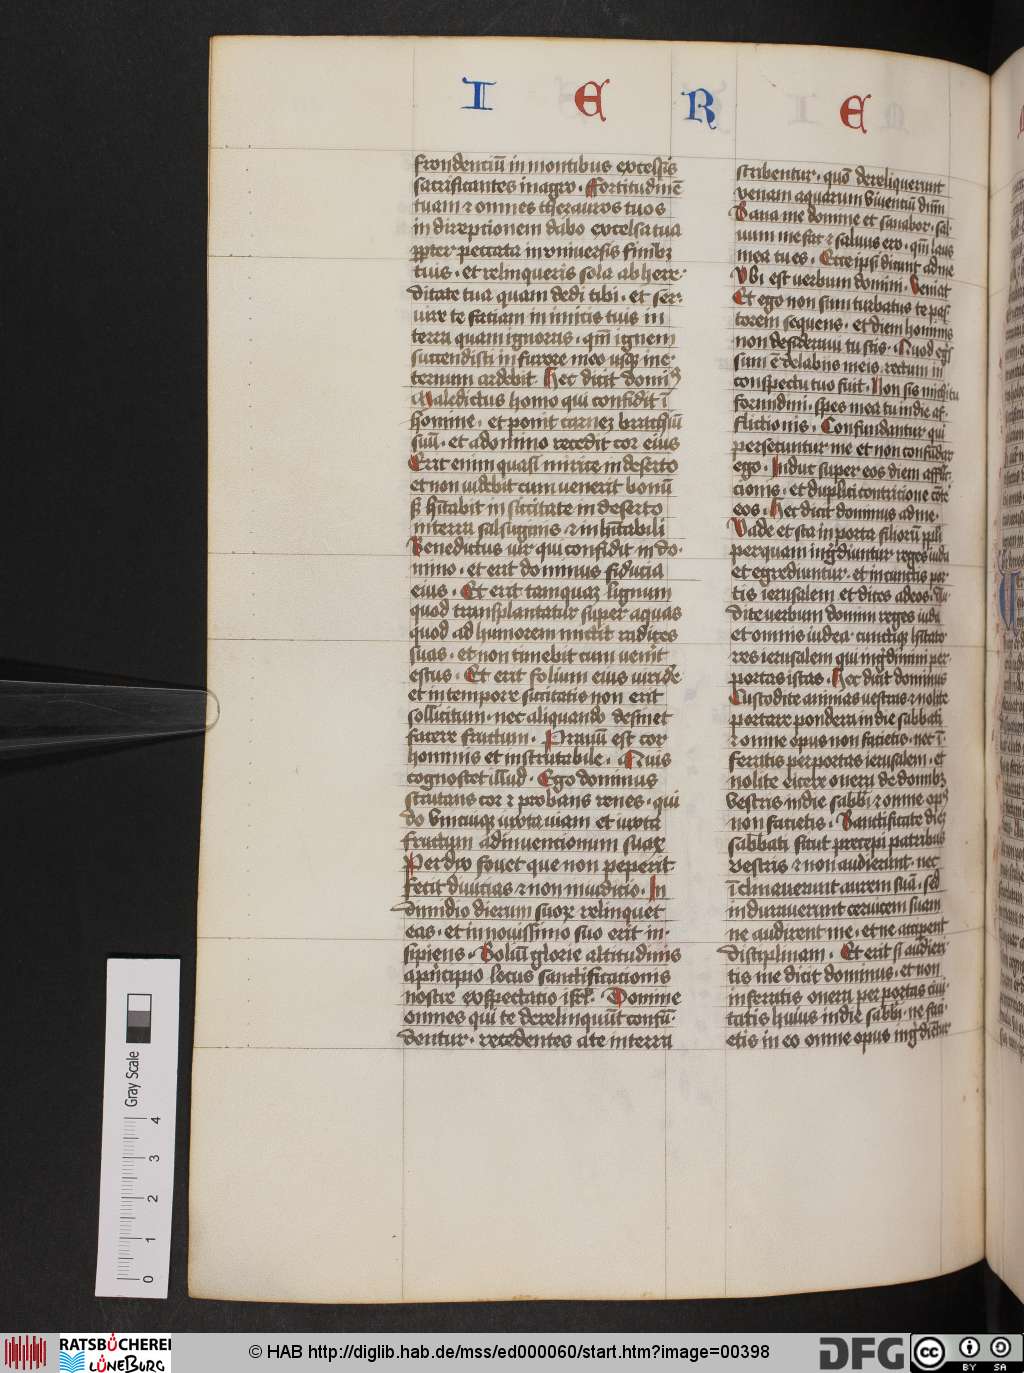 I E R E
frondenciū in montibus excelsis
sacrificantes in agro · Fortitudinē
tuam ⁊ omnes thezauros tuos
in direptionem dabo excelsa tua
ꝓpter peccata in vniuersis finibꝫ
tuis · et relinqueris sola ab here·
ditate tua quam dedi tibi · et ser·
uire te faciam inimicis tuis in
terra quam ignoras · qm̄ ignem
succendisti in furore meo vsqꝫ in e·
ternum ardebit Hec dicit domiꝰ
Maledictus homo qui confidit ī
homine · et ponit carneꝫ brachiū
suū · et a domino recedit cor eius
Erit enim quasi mirice in deserto
et non uidebit cum uenerit bonū
sꝫ hītabit in siccitate in deserto
in terra salsuginis ⁊ inhītabili
Benedictus uir qui confidit in do·
mino · et erit dominus fiducia
eius · Et erit tamquaꝫ lignum
quod transplantatur super aquas
quod ad humorem mittit radices
suas · et non timebit cum uenīt
estus · Et erit folium eius uiride
et in tempore siccitatis non erit
sollicitum · nec aliquando desinet
facere fructum · Prauū est cor
hominis et inscrutabile · Quis
cognoscet illud · Ego dominus
scrutans cor ⁊ probans renes · qui
do vnicuiqꝫ iuxta uiam et iuxta
fructum adinuentionum suaꝝ
Perdix fouet que non peperit
fecit diuicias ⁊ non in iudicio · In
dimidio dierum suoꝝ relinquet
eas · et in nouissimo suo erit in·
sipiens · Soliū glorie altitudinis
a pn̄cipio locus sanctificacionis
nostre exspectatio isrl̄ · Domine
omnes qui te derelinquūt confū·
dentur · recedentes a te in terra
scribentur · quō dereliquerunt
venam aquarum viuentiū dn̄m
Sana me domine et sanabor · sal
uum me fac ⁊ saluus ero · qm̄ laus
mea tu es · Ecce ipsi dicunt ad me
Vbi est uerbum domini · Veniat
Et ego non sum turbatus te pas
torem sequens · et diem hominis
non desideraui tu scis · Quod egs
sum ē de labiis meis rectum in
conspectu tuo fuit · Non sis michi tu
formidini · spes mea tu in die af·
flictionis · Confundantur qui
persecuntur me et non confūdar
ego · Induc super eos diem afflic
cionis · et duplici contritione cōte
eos · Hec dicit dominus ad me ·
Vade et sta in porta filiorū ppli
per quam ingdiuntur reges iuda
et egrediuntur · et in cunctis por
tis ierusalem et dices ad eos · Au·
dite uerbum domini reges iuda
et omnis iudea · cunctiqꝫ hītato·
res ierusalem qui ingdimini per
portas istas · Hec dicit dominus
Custodite animas uestras ⁊ nolite
portare pondera in die sabbati
⁊ omne opus non facietis · nec ī·
ferratis per portas ierusalem · et
nolite eicere onera de domibꝫ
vestris in die sabbi ⁊ omne opꝰ
non facietis · Sanctificate dieꝫ
sabbati sicut precepi patribus
vestris ⁊ non audierunt · nec
īclinauerunt aurem suā · sed
indurauerunt ceruicem suam
ne audirent me · et ne acciperent
disciplinam · Et erit si audieri
tis me dicit dominus · et non
inferratis onera per portas ciui
tatis huius in die sabbi · ne faci·
etis in eo omne opus ingdientur
Gray Scale
0 1 2 3 4
RATSBÜCHEREI
LÜNEBURG
© HAB http://diglib.hab.de/mss/ed000060/start.htm?image=00398
DFG
cc BY SA